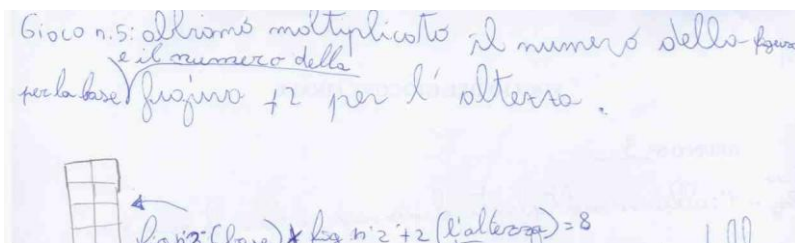 Gioco n.5: abbiamo moltiplicato il numero della figura
e il numero della
per la base figura +2 per l'altezza.
fig n°2 (base) x fig n°2 +2 (l'altezza) = 8